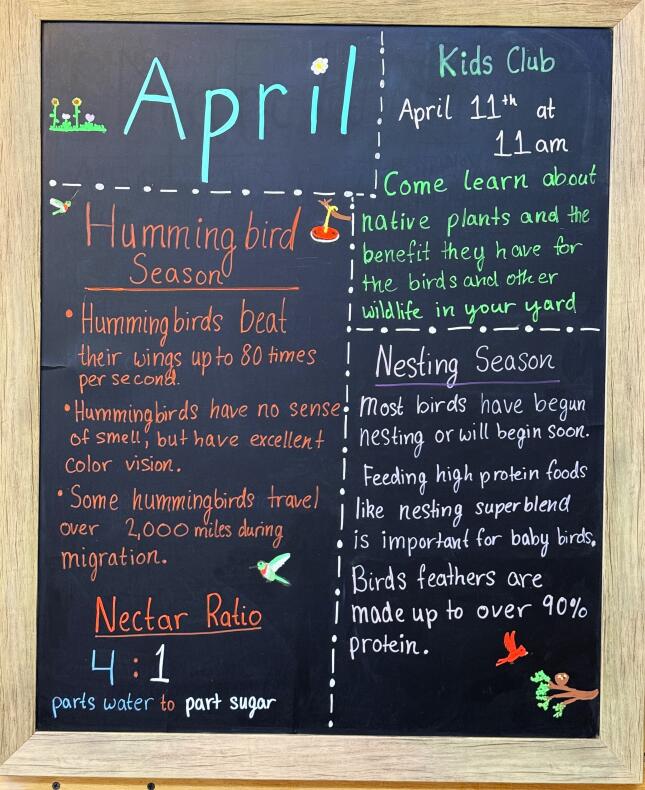 April
Kids Club
April 11th at
11am
Come learn about
native plants and the
benefit they have for
the birds and other
wildlife in your yard
Hummingbird
Season
• Hummingbirds beat
their wings up to 80 times
per second.
• Hummingbirds have no sense
of smell, but have excellent
color vision.
• Some hummingbirds travel
over 2,000 miles during
migration.
Nectar Ratio
4 : 1
parts water to part sugar
Nesting Season
Most birds have begun
nesting or will begin soon.
Feeding high protein foods
like nesting superblend
is important for baby birds.
Birds feathers are
made up to over 90%
protein.